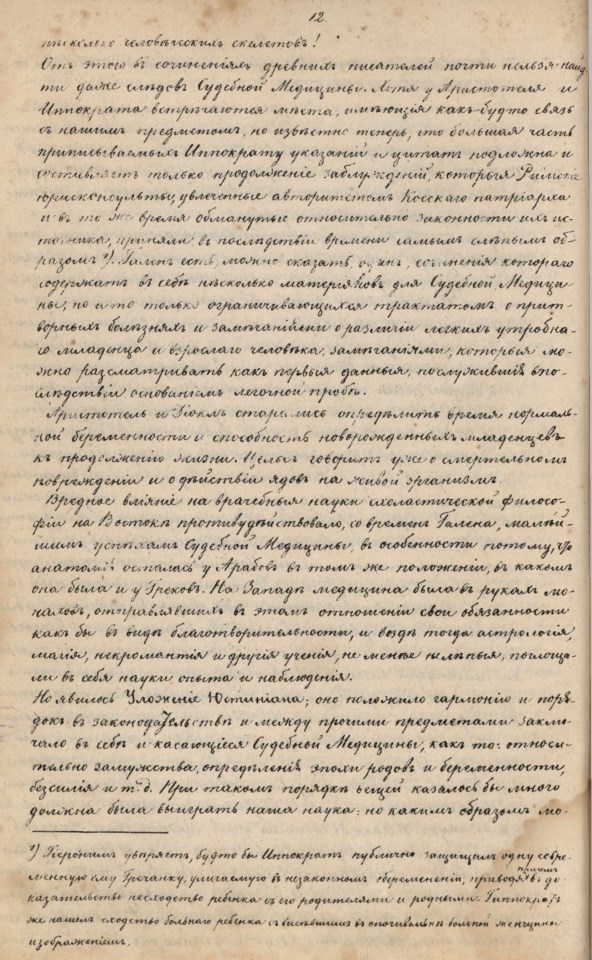 12.
нѣсколько человѣческихъ скелетовъ!
Отъ этого въ сочиненіяхъ древнихъ писателей почти нельзя най-
ти даже слѣдовъ Судебной Медицины. Хотя у Аристотеля и
Иппократа встрѣчаются мѣста, имѣющія какъ-будто связь
съ нашимъ предметомъ, но извѣстно теперь, что большая часть
приписываемыхъ Иппократу указаній и цитатъ подложна и
составляетъ только продолженіе заблужденій, которыя Римскіе
юрисконсульты, увлеченные авторитетомъ Косскаго патріарха
и въ то же время обманутые относительно законности ихъ ис-
точника, приняли въ послѣдствіи времени самымъ слѣпымъ об-
разомъ ¹). Галенъ есть, можно сказать, одинъ, сочиненія котораго
содержатъ въ себѣ нѣсколько матеріяловъ для Судебной Медици-
ны; но и то только ограничивающихся трактатомъ о прит-
ворныхъ болѣзняхъ и замѣчаніями о различіи легкихъ утробна-
го младенца и взрослаго человѣка, замѣчаніями, которыя мо-
жно разсматривать какъ первыя данныя, послужившія впо-
слѣдствіи основаніемъ легочной пробы.
Аристотель и старались опредѣлить время нормаль-
ной беременности и способность новорожденныхъ младенцевъ
къ продолженію жизни. Цельсъ говоритъ уже о смертельномъ
поврежденіи и о дѣйствіи ядовъ на живой организмъ.
Вредное вліяніе на врачебныя науки схоластической филосо-
фіи на Востокѣ противудѣйствовало, со временъ Галена, малѣй-
шимъ успѣхамъ Судебной Медицины, въ особенности потому, что
анатомія осталась у Арабовъ въ томъ же положеніи, въ какомъ
она была и у Грековъ. На Западѣ медицина была въ рукахъ мо-
наховъ, отправлявшихъ въ этомъ отношеніи свои обязанности
какъ бы въ видѣ благотворительности, и вездѣ тогда астрологія,
магія, некромантія и другія ученія, не менѣе нелѣпыя, поглоща-
ли въ себя науки опыта и наблюденія.
Но явилось Уложеніе Юстиніана; оно положило гармонію и поря-
докъ въ законодательствѣ и между прочими предметами заклю-
чало въ себѣ и касающіеся Судебной Медицины, какъ то: относи-
тельно замужства, опредѣленія эпохи родовъ и беременности,
безсилія и т. д. При такомъ порядкѣ вещей казалось бы много
должна была выиграть наша наука: но какимъ образомъ мо-
¹) Іеронимъ увѣряетъ, будто бы Иппократъ публично защищалъ одну совре-
менную ему Гречанку, уличаемую въ незаконномъ беременеріи, приводя причемъ въ до-
казательство несходство ребенка съ его родителями и родными. Гиппократъ
же нашелъ сходство больнаго ребенка съ висѣвшимъ въ опочивальнѣ больной женщины
изображеніемъ.